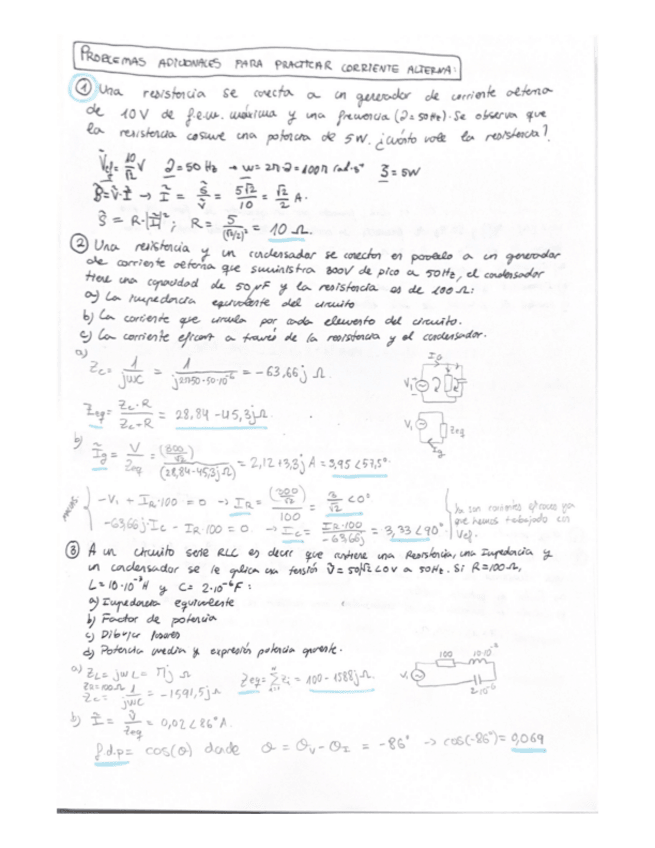 PROBLEMAS ADICIONALES PARA PRACTICAR CORRIENTE ALTERNA:
① Una resistencia se conecta a un generador de corriente alterna
de 10V de f.e.m. máxima y una frecuencia (∂=50Hz). Se observa que
la resistencia consume una potencia de 5W. ¿Cuánto vale la resistencia?
Ṽef = 10/√2 V ∂=50 Hz → w=2π·∂=100π rad·s⁻¹ S̃=5W
S̃=Ṽ·Ĩ → Ĩ = S̃/Ṽ = 5√2/10 = √2/2 A.
S̃ = R·|Ĩ|²; R = 5/(√2/2)² = 10 Ω.
② Una resistencia y un condensador se conectan en paralelo a un generador
de corriente alterna que suministra 300V de pico a 50Hz, el condensador
tiene una capacidad de 50μF y la resistencia es de 100 Ω:
a) La impedancia equivalente del circuito
b) La corriente que circula por cada elemento del circuito.
c) La corriente eficaz a través de la resistencia y el condensador.
a)
Zc = 1/jwc = 1/j2π50·50·10⁻⁶ = -63,66j Ω.
Zeq = Zc·R/Zc+R = 28,84 -45,3jΩ
Ig
V₁
V₁
Zeq
Ig
b) Ĩg = V/Zeq = (300/√2)/(28,84-45,3jΩ) = 2,12+3,3j A = 3,95∠57,5°
-V₁ + IR·100 = 0 → IR = (300/√2)/100 = 3/√2 ∠0°
-63,66j·Ic - IR·100 = 0 → Ic = IR·100/-63,66j = 3,33∠90°
ya son corrientes eficaces ya
que hemos trabajado con
Vef.
③ A un circuito serie RLC es decir que contiene una Resistencia, una Impedancia y
un condensador se le aplica una tensión Ṽ=50/√2∠0V a 50Hz. Si R=100Ω,
L=10·10⁻³H y C=2·10⁻⁶F:
a) Impedancia equivalente
b) Factor de potencia
c) Dibujar fasores
d) Potencia media y expresión potencia aparente.
a) ZL=jwL= πj Ω
ZR=100Ω
Zc= 1/jwc = -1591,5jΩ
Zeq=Σ Zi = 100-1588jΩ.
100 10·10⁻³
V₁
2·10⁻⁶
b) Ĩ = Ṽ/Zeq = 0,02∠86°A.
f.d.p= cos(θ) donde θ = θV-θI = -86° → cos(-86°)= 0,069